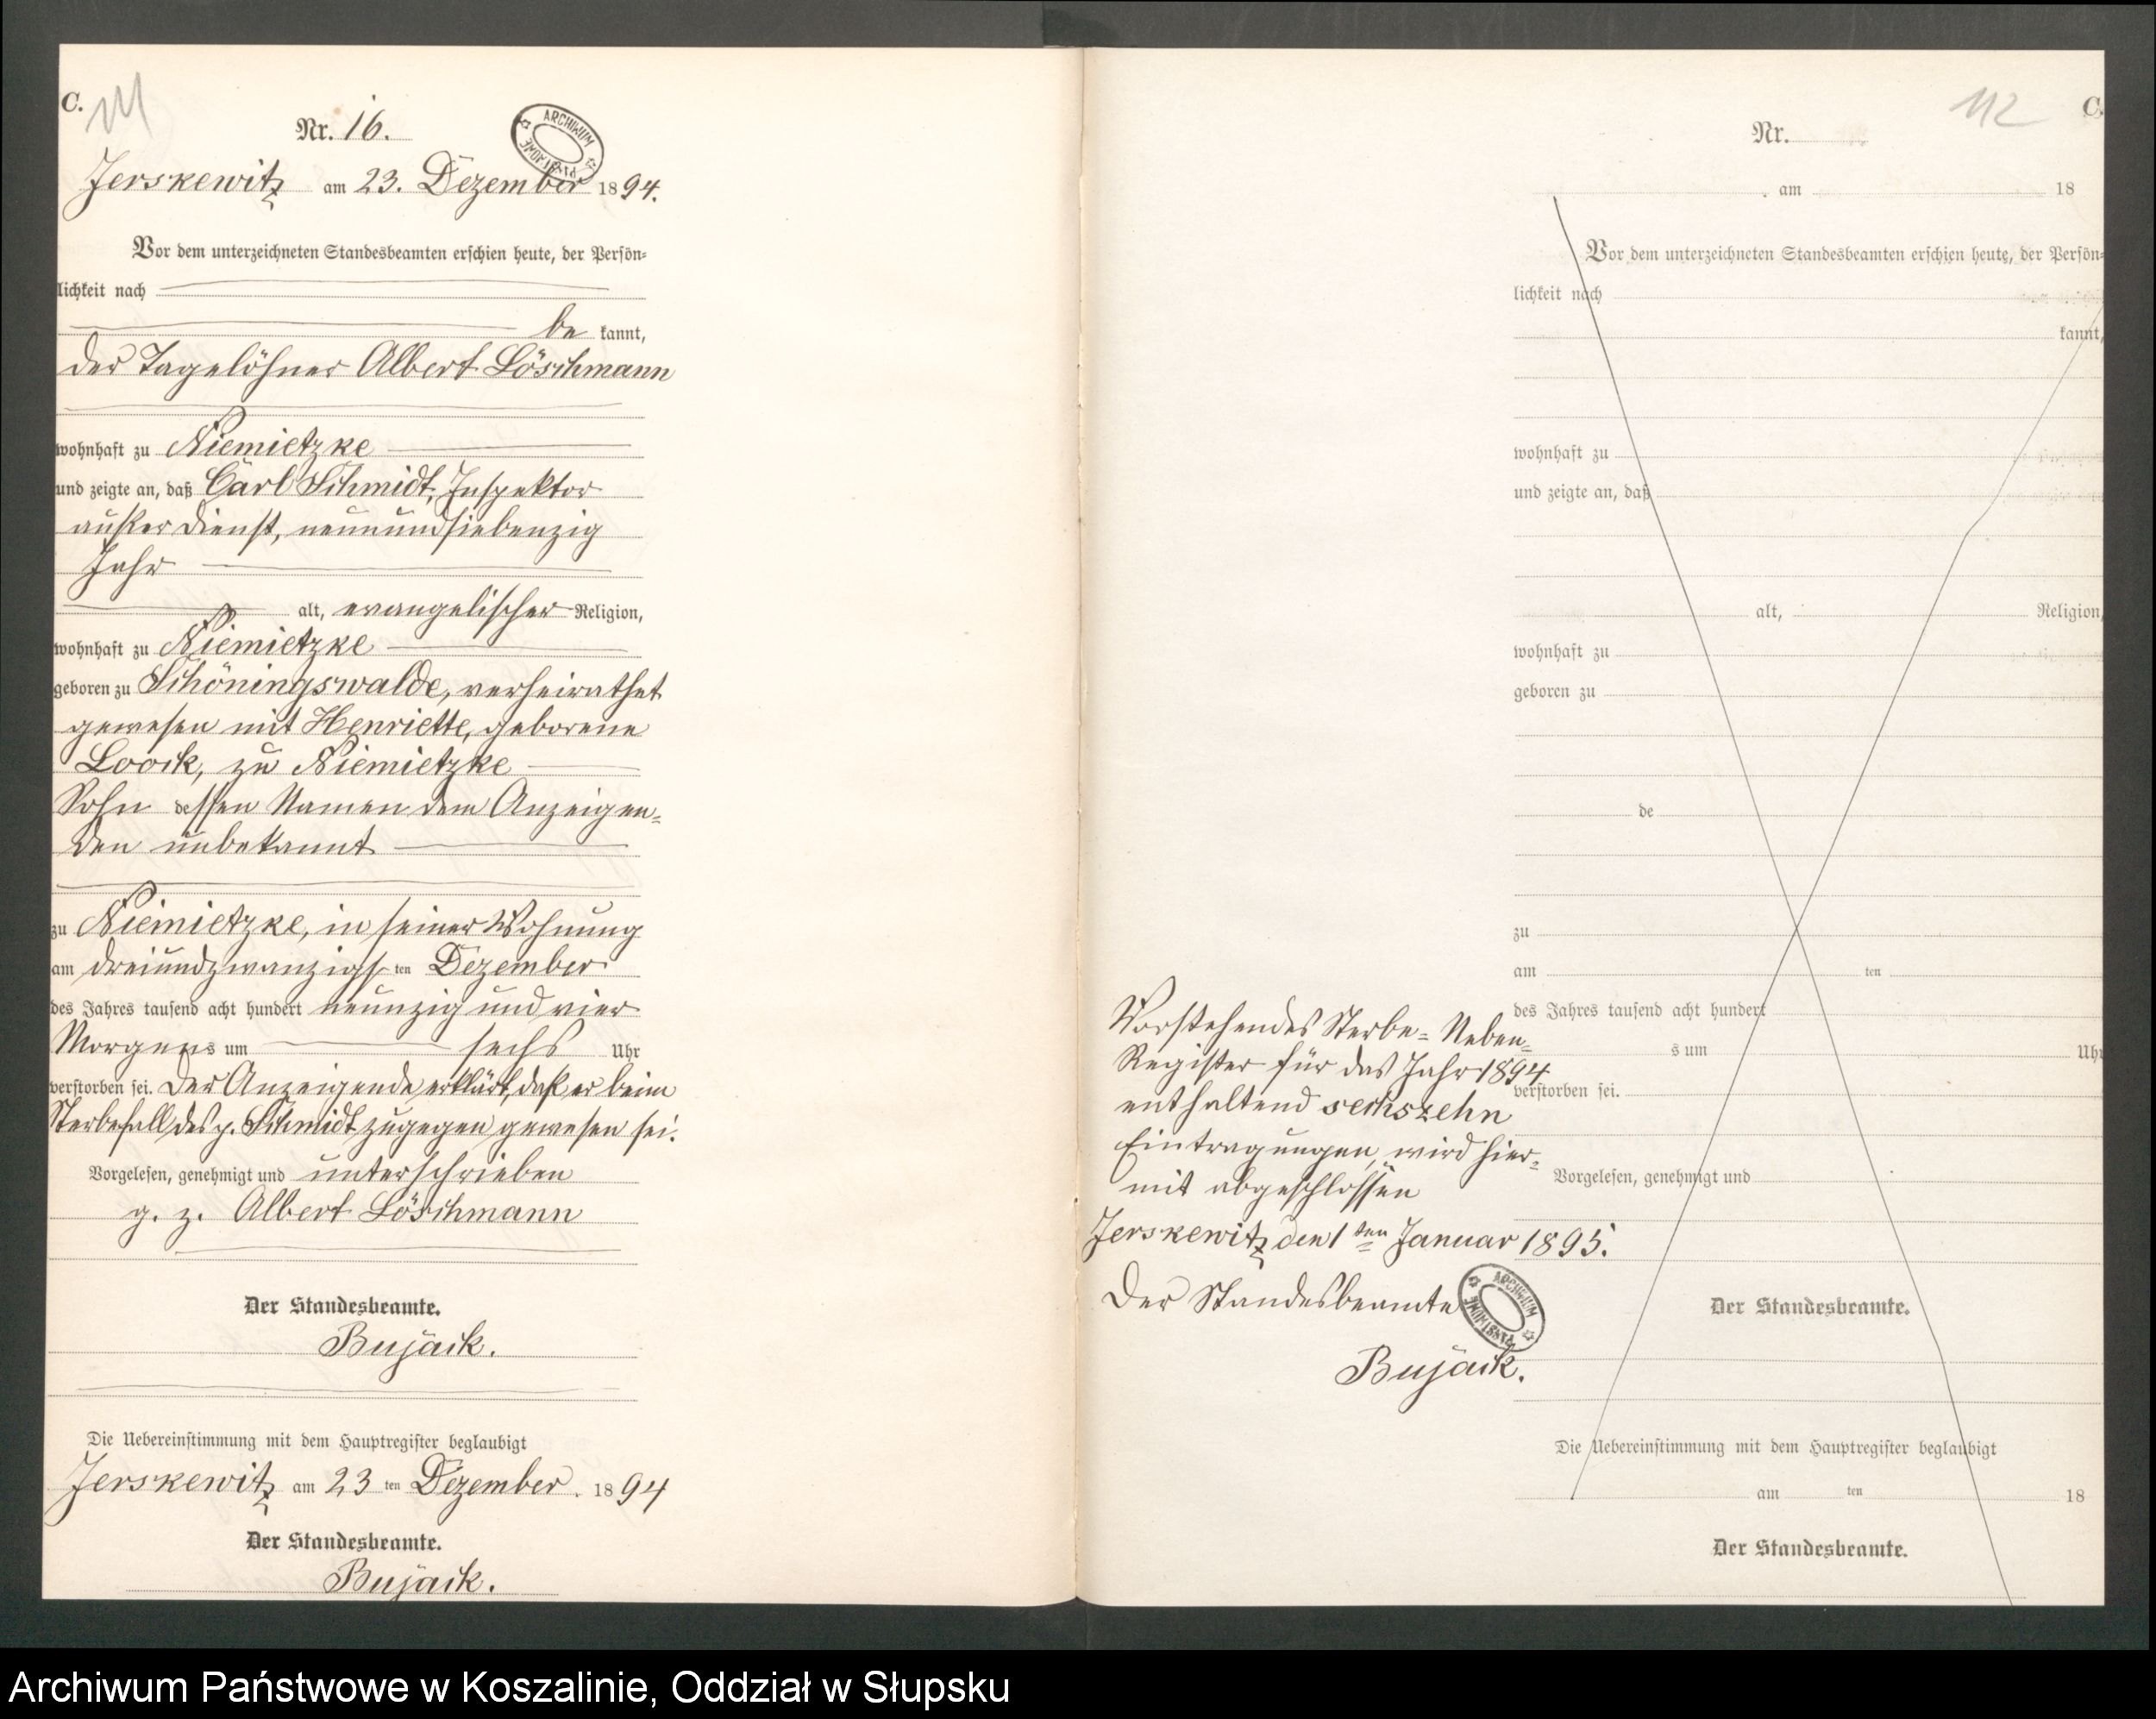 C.
111
Nr. 16.
ARCHIWUM
Jerskewitz am 23. Dezember 1894.
Vor dem unterzeichneten Standesbeamten erschien heute, der Persön-
lichkeit nach
be kannt,
der Tagelöhner Albert Löschmann
wohnhaft zu Niemietzke
und zeigte an, daß Carl Schmidt, Inspektor
außer Dienst, neunundsiebenzig
Jahr
alt, evangelischer Religion,
wohnhaft zu Niemietzke
geboren zu Schöningswalde, verheirathet
gewesen mit Henriette, geborene
Loock, zu Niemietzke
Sohn dessen Namen dem Anzeigen-
den unbekannt
zu Niemietzke, in seiner Wohnung
am dreiundzwanzigsten Dezember
des Jahres tausend acht hundert neunzig und vier
Morgens um sechs Uhr
verstorben sei. Der Anzeigende erklärt, daß er beim
Sterbefall des p. Schmidt zugegen gewesen sei.
Vorgelesen, genehmigt und unterschrieben
g. z. Albert Löschmann
Der Standesbeamte.
Bujack.
Die Uebereinstimmung mit dem Hauptregister beglaubigt
Jerskewitz am 23 ten Dezember. 1894
Der Standesbeamte.
Bujack.
112
C.
Nr.
am 18
Vor dem unterzeichneten Standesbeamten erschien heute, der Persön-
lichkeit nach
kannt,
wohnhaft zu
und zeigte an, daß
alt, Religion,
wohnhaft zu
geboren zu
de
zu
am ten
des Jahres tausend acht hundert
s um Uhr
verstorben sei.
Vorgelesen, genehmigt und
Der Standesbeamte.
Die Uebereinstimmung mit dem Hauptregister beglaubigt
am ten 18
Der Standesbeamte.
Vorstehendes Sterbe-Neben-
Register für das Jahr 1894
enthaltend sechszehn
Eintragungen, wird hier-
mit abgeschlossen
Jerskewitz den 1ten Januar 1895.
Der Standesbeamte
ARCHIWUM
Bujack.
Archiwum Państwowe w Koszalinie, Oddział w Słupsku